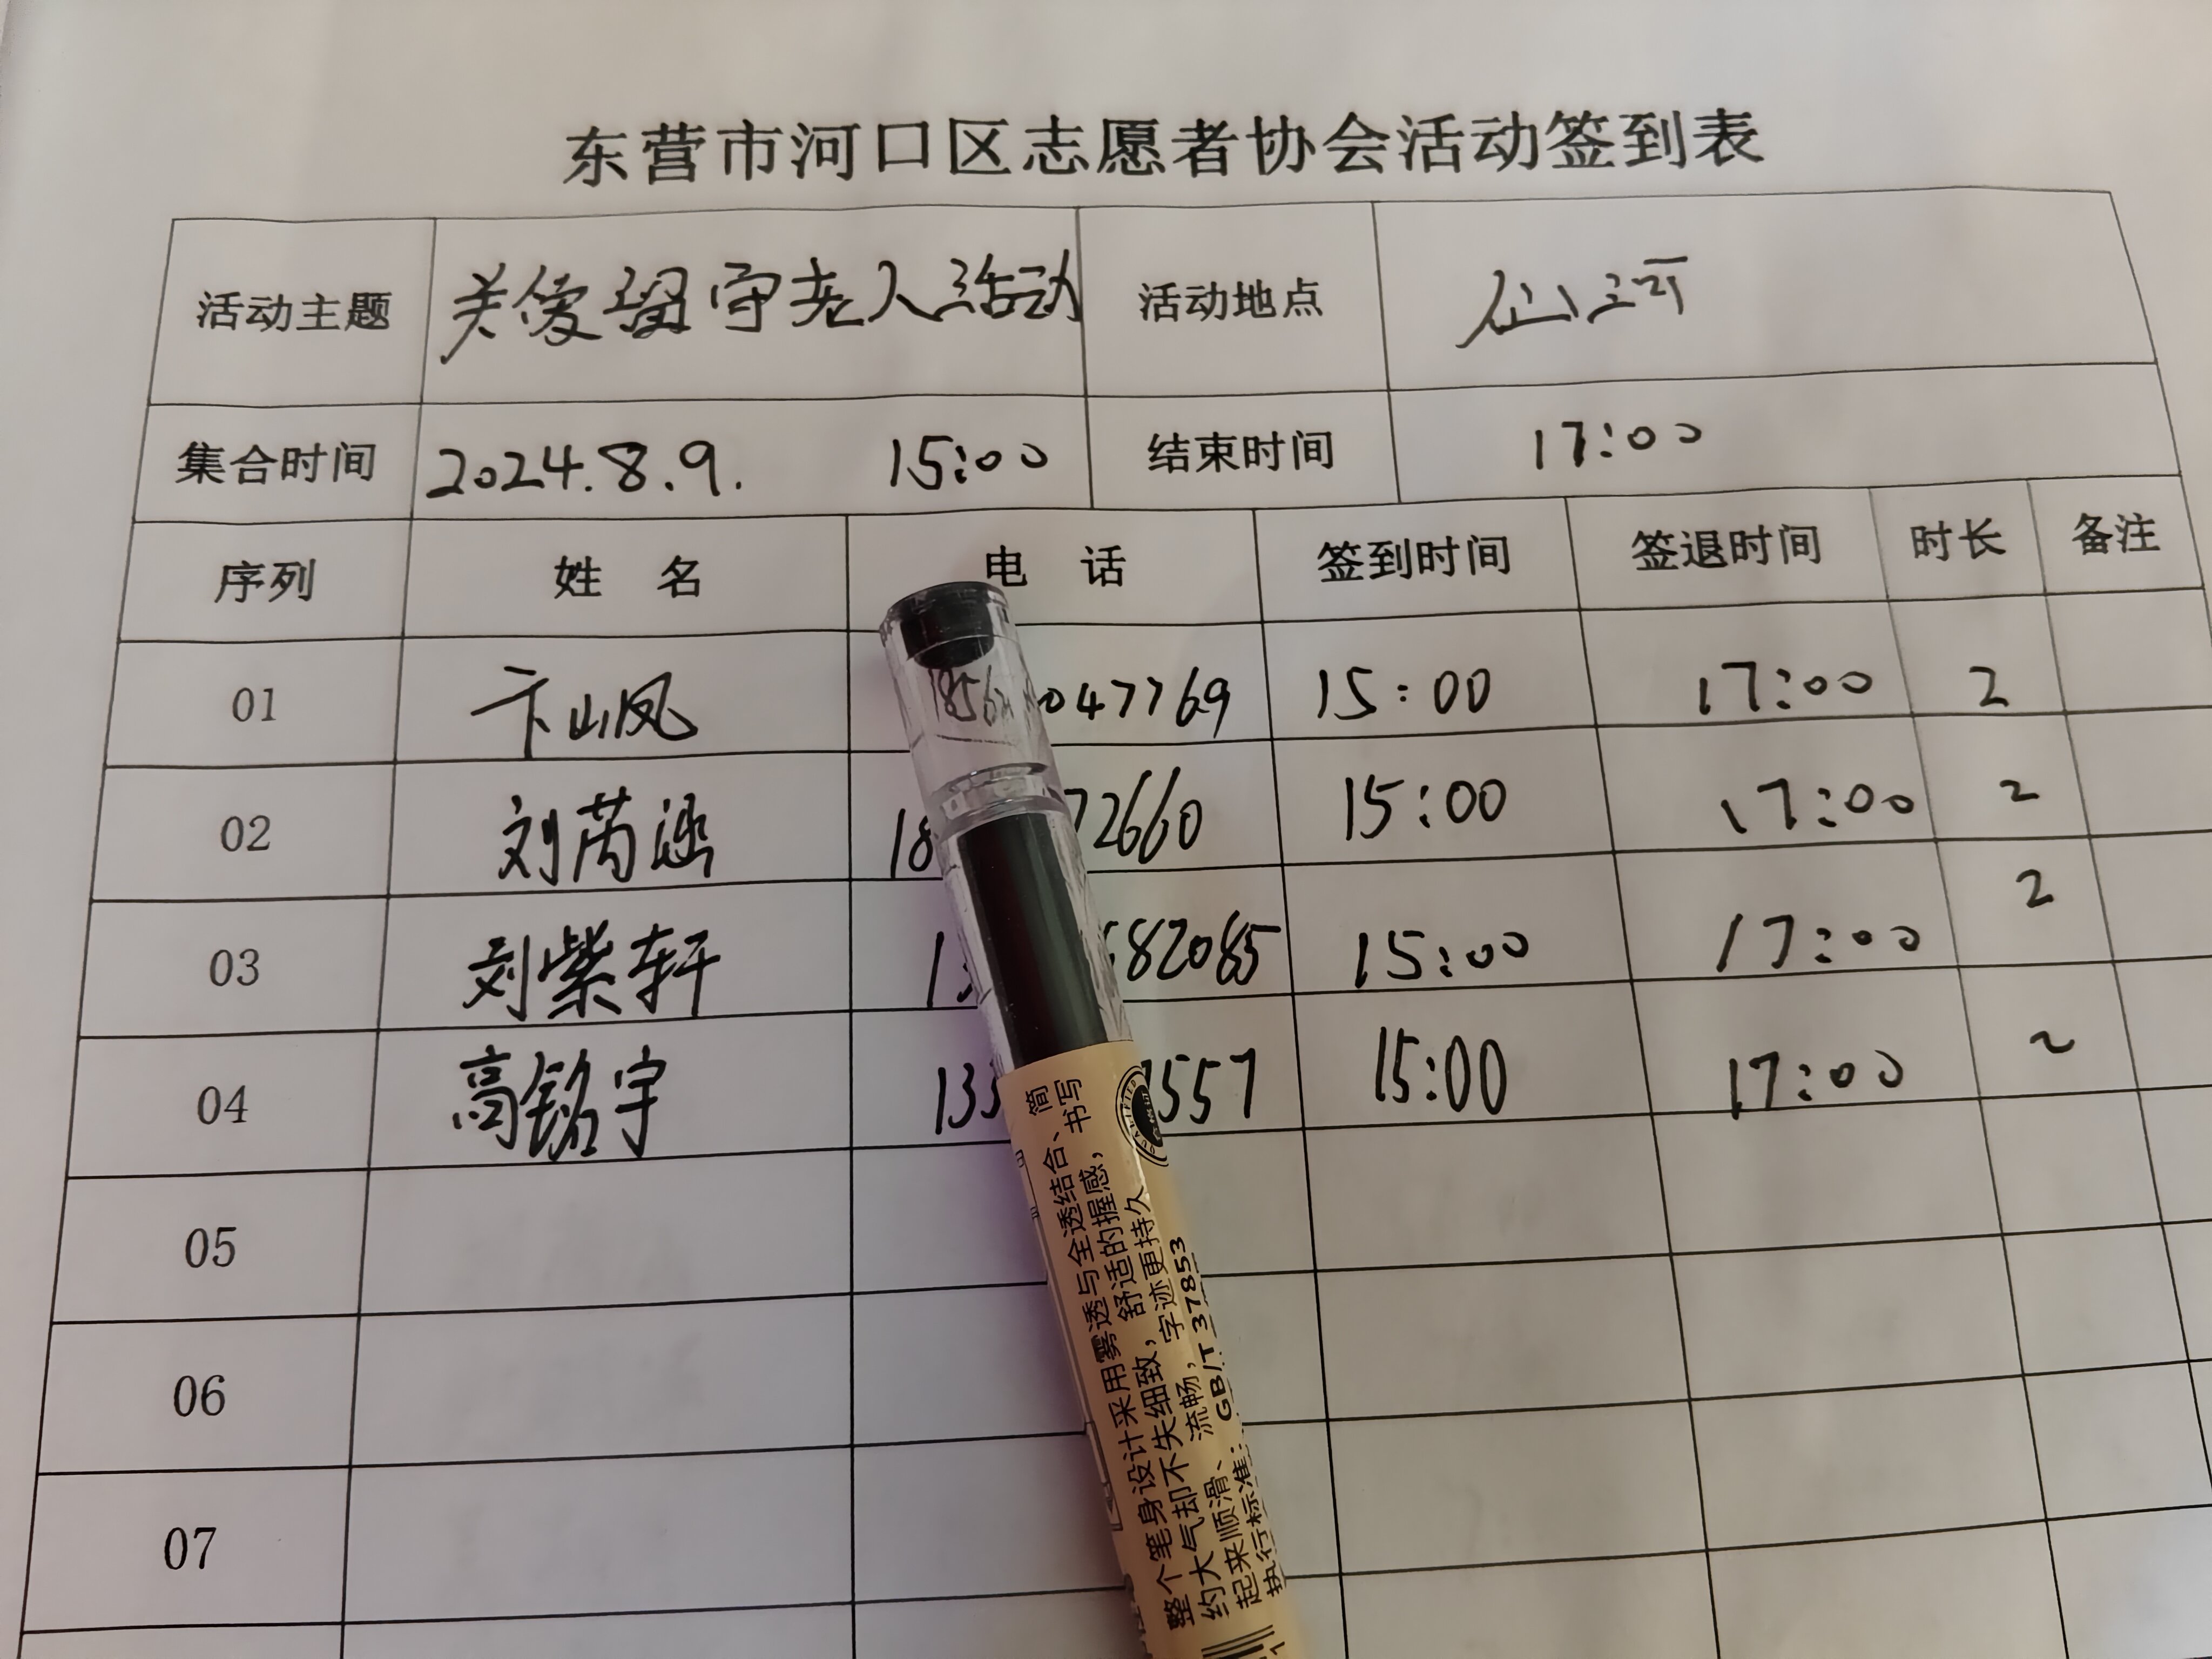 东营市河口区志愿者协会活动签到表
活动主题 关爱留守老人活动 活动地点 仙河
集合时间 2024.8.9. 15:00 结束时间 17:00
序列 姓 名 电 话 签到时间 签退时间 时长 备注
01 卞山凤 047769 15:00 17:00 2
02 刘芮涵 18 72660 15:00 17:00 2
03 刘紫轩 82085 15:00 17:00 2
04 高铭宇 133 1557 15:00 17:00 2
05
06
07
整个笔身设计采用雾透与全透结合、简
约大气却不失细致,舒适的握感,书写
起来顺滑、流畅,字迹更持久
执行标准: GB/T 37853
QUALIFIED